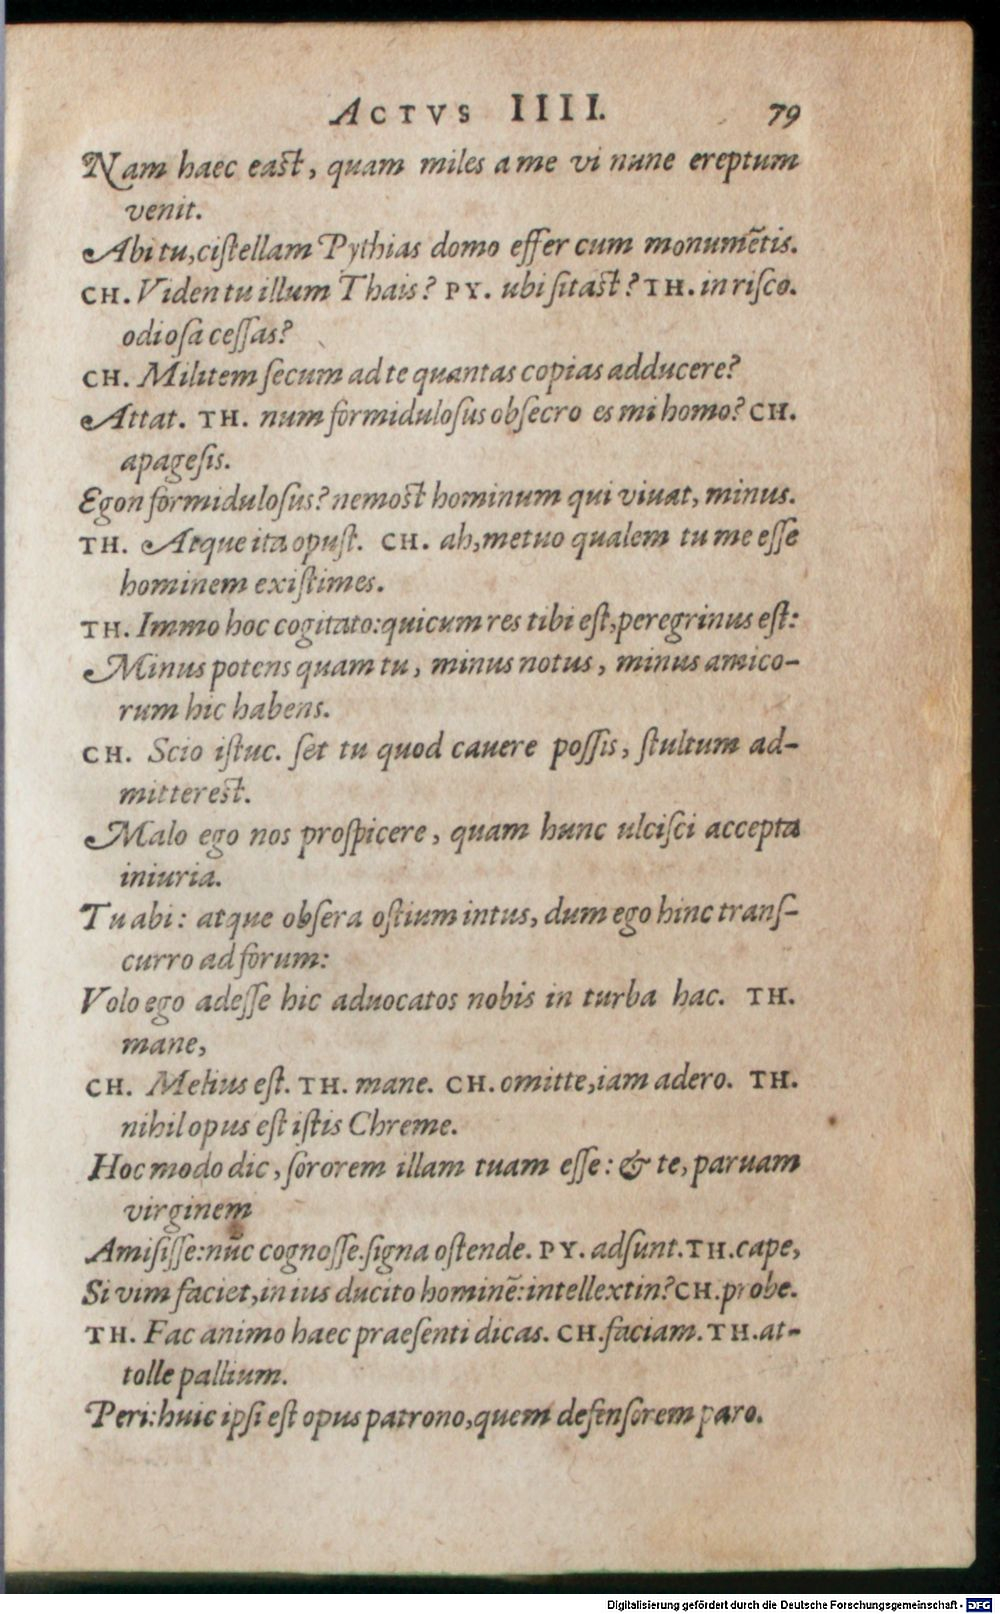 ACTVS IIII. 79
Nam haec east, quam miles a me vi nunc ereptum
venit.
Abi tu, cistellam Pythias domo effer cum monumētis.
CH. Viden tu illum Thais? PY. ubi sitast? TH. in risco.
odiosa cessas?
CH. Militem secum ad te quantas copias adducere?
Attat. TH. num formidulosus obsecro es mi homo? CH.
apagesis.
Egon formidulosus? nemost hominum qui viuat, minus.
TH. Atque ita opust. CH. ah, metuo qualem tu me esse
hominem existimes.
TH. Immo hoc cogitato: quicum res tibi est, peregrinus est:
Minus potens quam tu, minus notus, minus amico-
rum hic habens.
CH. Scio istuc. set tu quod cauere possis, stultum ad-
mitterest.
Malo ego nos prospicere, quam hunc ulcisci accepta
iniuria.
Tu abi: atque obsera ostium intus, dum ego hinc trans-
curro ad forum:
Volo ego adesse hic aduocatos nobis in turba hac. TH.
mane,
CH. Melius est. TH. mane. CH. omitte, iam adero. TH.
nihil opus est istis Chreme.
Hoc modo dic, sororem illam tuam esse: & te, paruam
virginem
Amisisse: nūc cognosse. signa ostende. PY. adsunt. TH. cape,
Si vim faciet, in ius ducito hominē: intellextin? CH. probe.
TH. Fac animo haec praesenti dicas. CH. faciam. TH. at-
tolle pallium.
Peri: huic ipsi est opus patrono, quem defensorem paro.
Digitalisierung gefördert durch die Deutsche Forschungsgemeinschaft - DFG